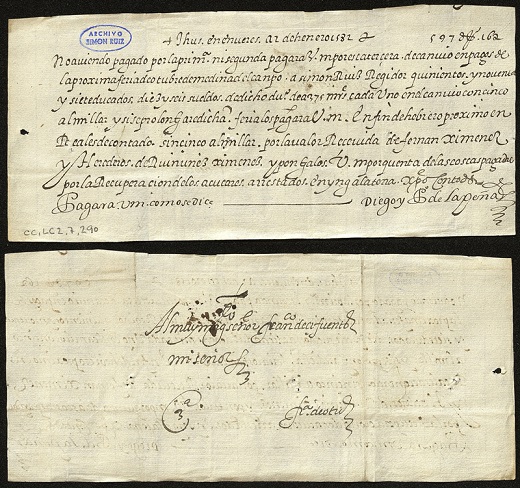 ARCHIVO
SIMON RUIZ
+ Jhus, en enveres, a 21 de henero 1582
597 16
No aviendo pagado por la prim.ª ni segunda pagara V. m. por esta tercera de canvio en pagos de
la proxima feria de otubre de medina del campo. a Simon Ruiz Regidor quinientos y noventa
y siete ducados, diez y seis sueldos. de dicho du.º de a 375 mrs cada Uno en el canvio con cinco
al millar y si se prolongare dicha feria los pagara V. m. En fin de hebrero proximo en
Reales de contado sin cinco al millar. por la valor Recevida de fernan Ximenez
y Herederos de Rui nunez ximenes, y pongalos V. m. por quenta de las costas pagadas
por la Recuperacion de los açucares arrestados en yngalaterra. Xpo Con todos
Pagara V. m. como se dice
Diego y P.º de la peña
CC, LC 2, 7, 290
Al muy mag.co señor fran.co de cifuentes
mi señor
3.ª